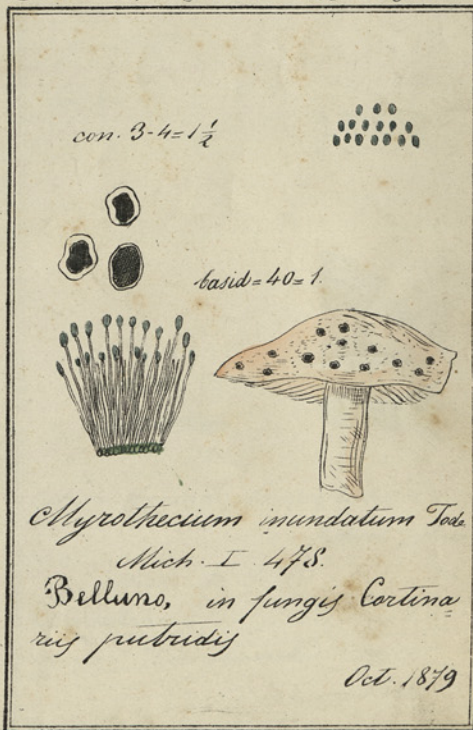 con. 3-4=1½
basid=40=1.
Myrothecium inundatum Tode
Mich. I. 478.
Belluno, in fungis Cortina=
riis putridis
Oct. 1879